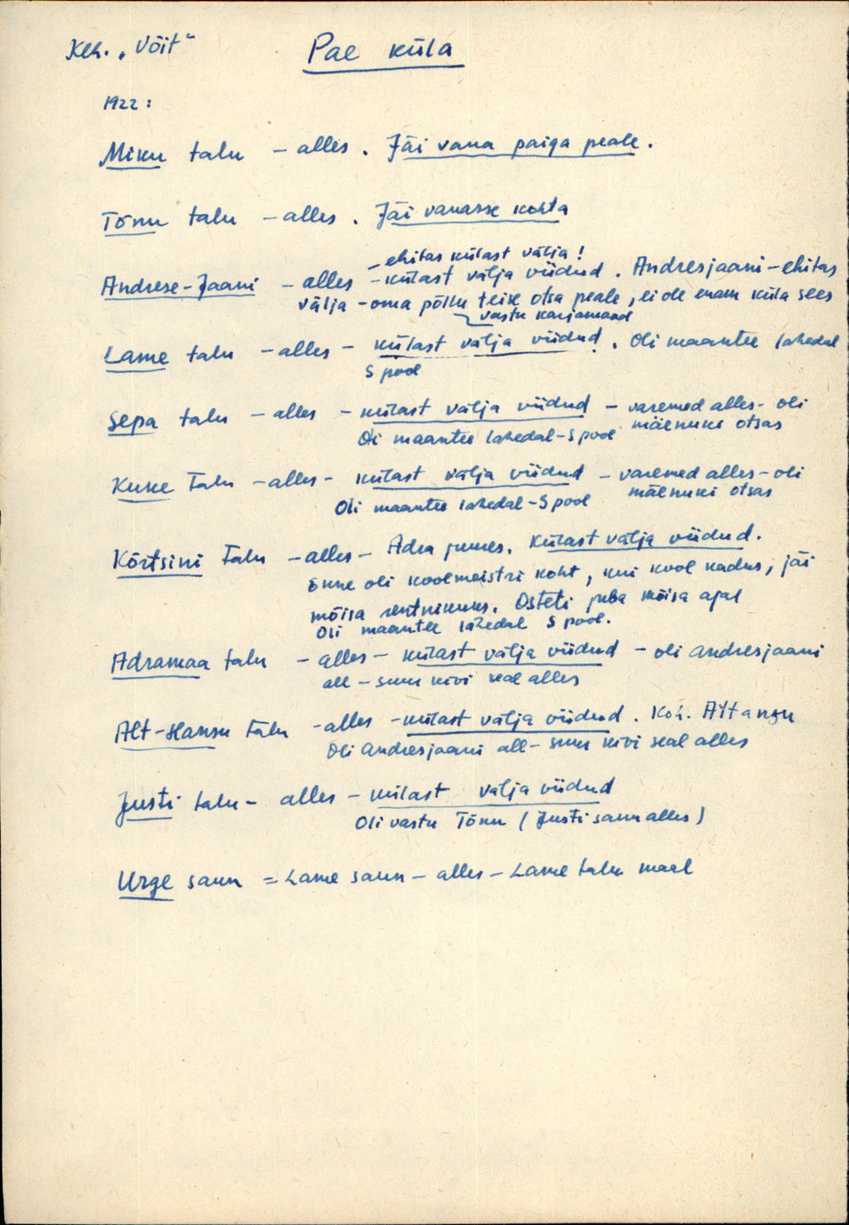 Keh. "Võit" Pae küla
1922:
Miku talu - alles. Jäi vana paiga peale.
Tõnu talu - alles. Jäi vanasse kohta
- ehitas külast välja!
Andrese-Jaani - alles - külast välja viidud. Andresjaani - ehitas
välja - oma põllu teise otsa peale, ei ole enam küla sees
vastu karjamaad
Lame talu - alles - külast välja viidud. Oli maantee lähedal
S pool
Sepa talu - alles - külast välja viidud - varemed alles - oli
Oli maantee lähedal - S pool mäenuki otsas
Kuke talu - alles - külast välja viidud - varemed alles - oli
Oli maantee lähedal - S pool mäenuki otsas
Kõrtsini talu - alles - Adra juures. Külast välja viidud.
enne oli koolmeistri koht, kui kool kadus, jäi
mõisa rentnikuks. Osteti juba mõisa ajal
Oli maantee lähedal S pool.
Adramaa talu - alles - külast välja viidud - oli Andresjaani
all - suur kivi seal alles
Alt-Hansu talu - alles - külast välja viidud. Koh.
Oli Andresjaani all - suur kivi seal alles
Justi talu - alles - külast välja viidud
Oli vastu Tõnu (Justi saun alles)
Urge saun = Lame saun - alles - Lame talu maal